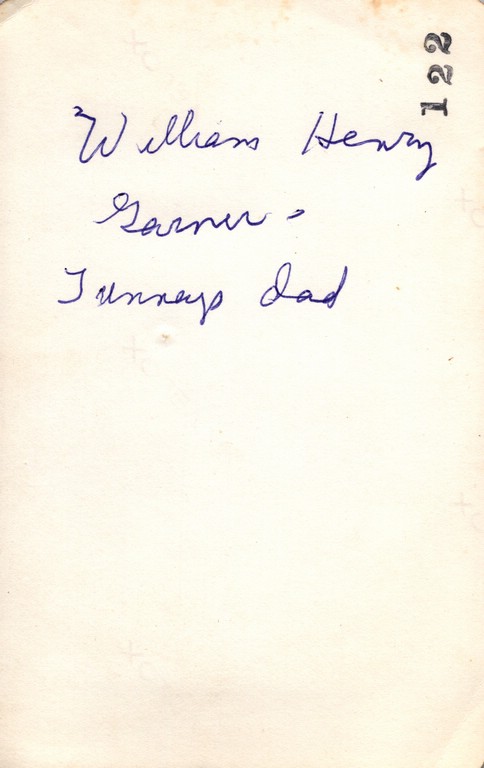 122
William Henry
Garner -
Tunneys dad